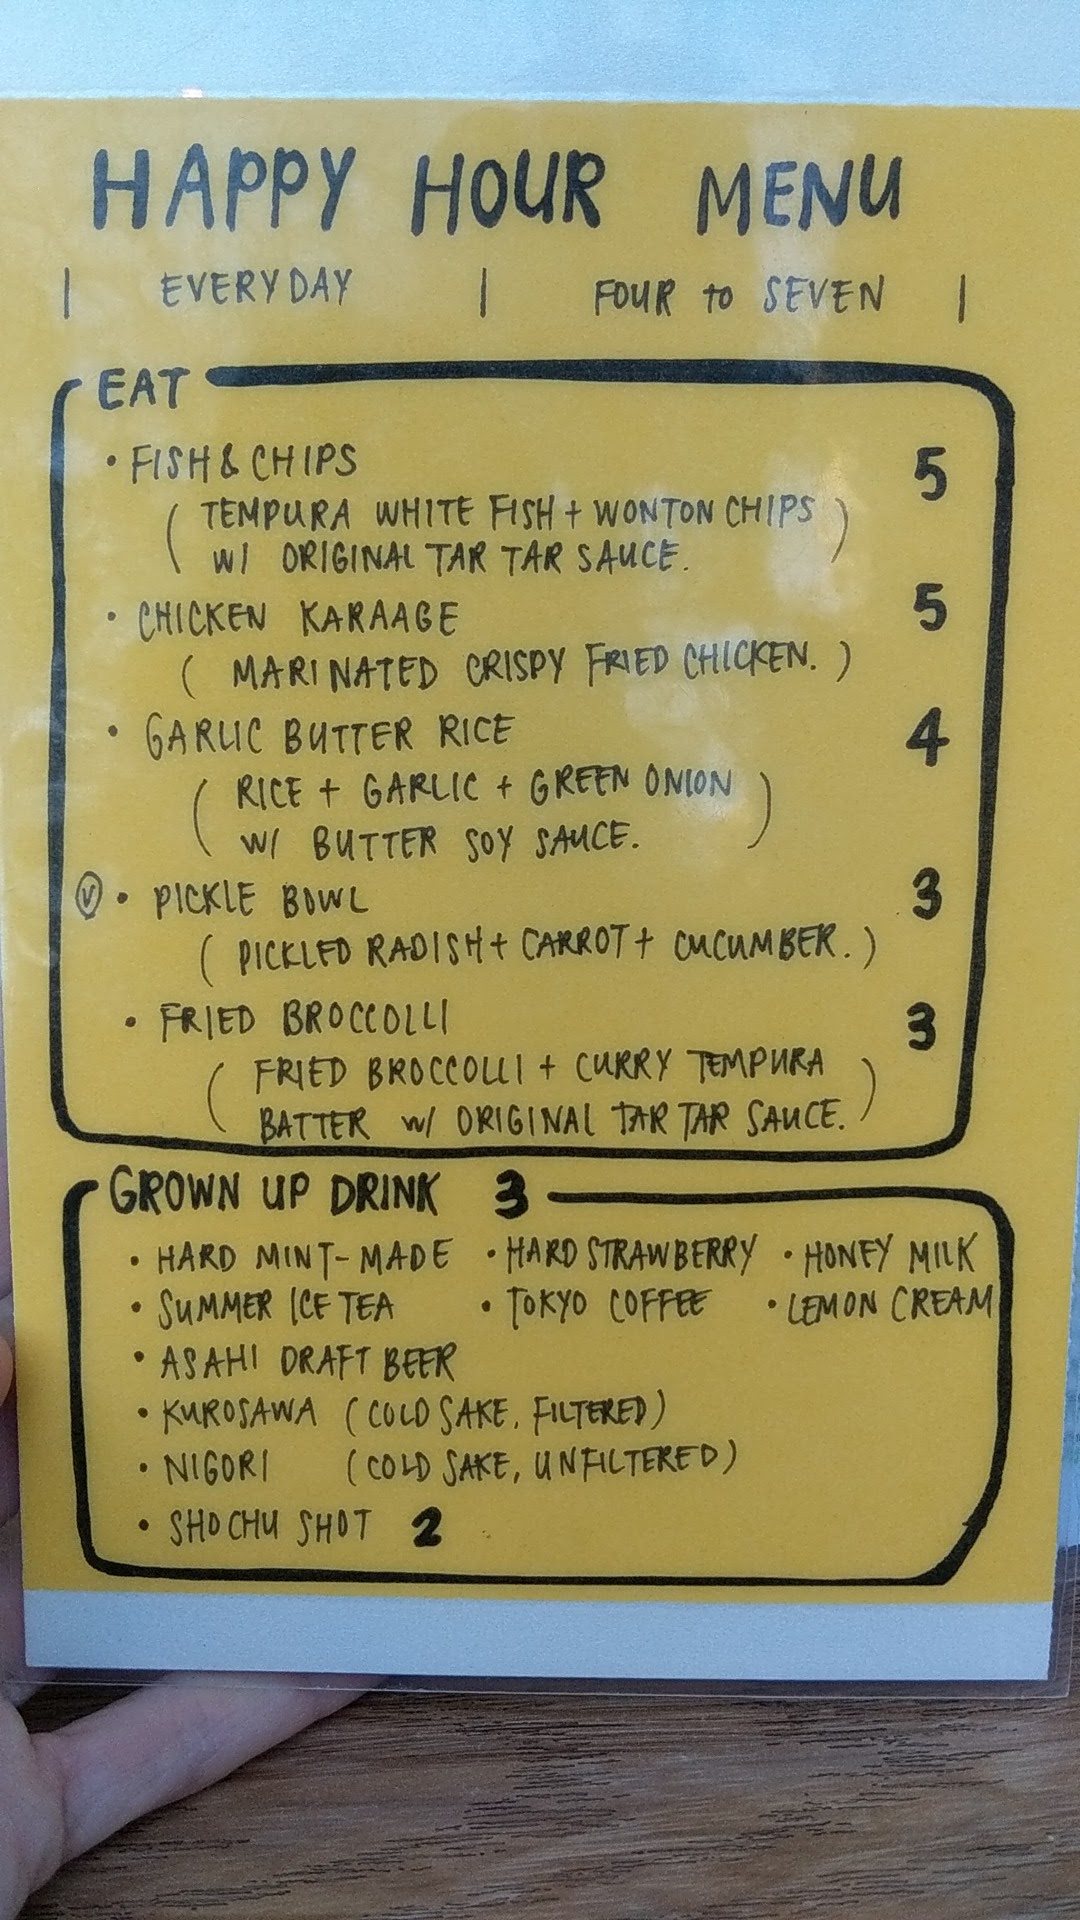 HAPPY HOUR MENU
| EVERYDAY | FOUR to SEVEN |
EAT
• FISH & CHIPS 5
( TEMPURA WHITE FISH + WONTON CHIPS
W/ ORIGINAL TAR TAR SAUCE. )
• CHICKEN KARAAGE 5
( MARINATED CRISPY FRIED CHICKEN. )
• GARLIC BUTTER RICE 4
( RICE + GARLIC + GREEN ONION
W/ BUTTER SOY SAUCE. )
Ⓥ • PICKLE BOWL 3
( PICKLED RADISH + CARROT + CUCUMBER. )
• FRIED BROCCOLLI 3
( FRIED BROCCOLLI + CURRY TEMPURA
BATTER W/ ORIGINAL TAR TAR SAUCE. )
GROWN UP DRINK 3
• HARD MINT-MADE • HARD STRAWBERRY • HONEY MILK
• SUMMER ICE TEA • TOKYO COFFEE • LEMON CREAM
• ASAHI DRAFT BEER
• KUROSAWA (COLD SAKE, FILTERED)
• NIGORI (COLD SAKE, UNFILTERED)
• SHOCHU SHOT 2